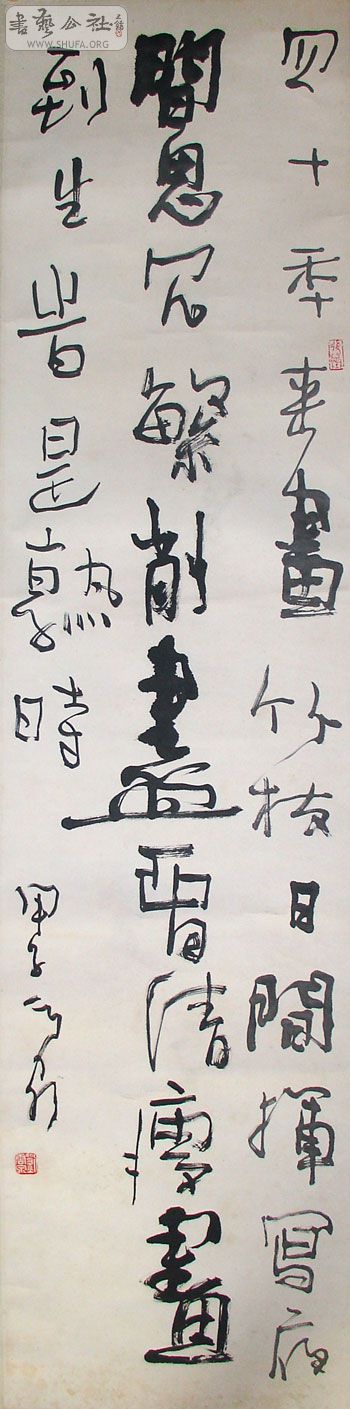 書藝公社
WWW.SHUFA.ORG
四十季來畫竹枝日間揮寫夜
間思冗繁削盡畱清瘦畫
到生旹是熟時
甲子